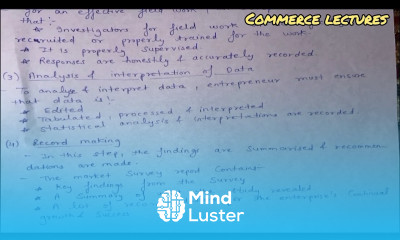 for an effective field work
that:-
COMMERCE LECTURES
* Investigators for field work
recruited or properly trained for the work.
* It is properly supervised.
* Responses are honestly & accurately recorded.
(3) Analysis & interpretation of Data
- To analyse & interpret data, entrepreneur must ensure
that data is:-
* Edited
* Tabulated, processed & interpreted
* Statistical analysis & interpretations are recorded.
(4) Record making
- In this step, the findings are summarised & recomm-
dations are made.
- The market survey report contains-
* Key findings from the survey
* A summary of
* A list of
growth &
Mind
Luster